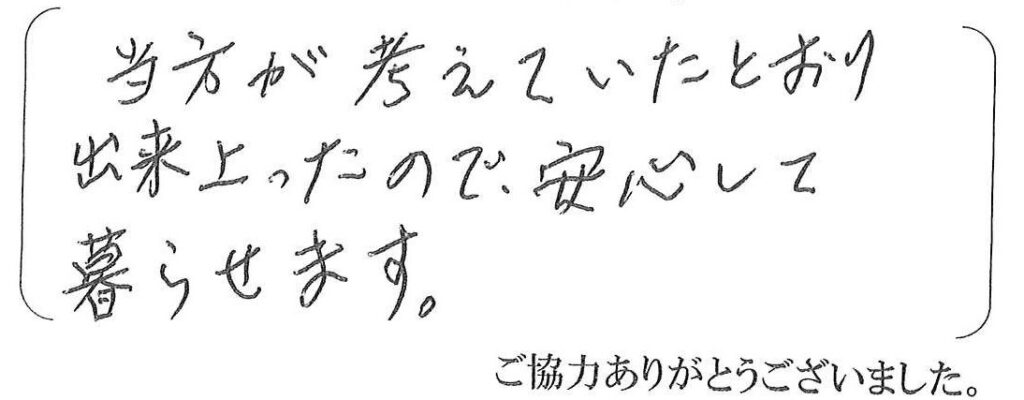 当方が考えていたとおり
出来上ったので、安心して
暮らせます。
ご協力ありがとうございました。